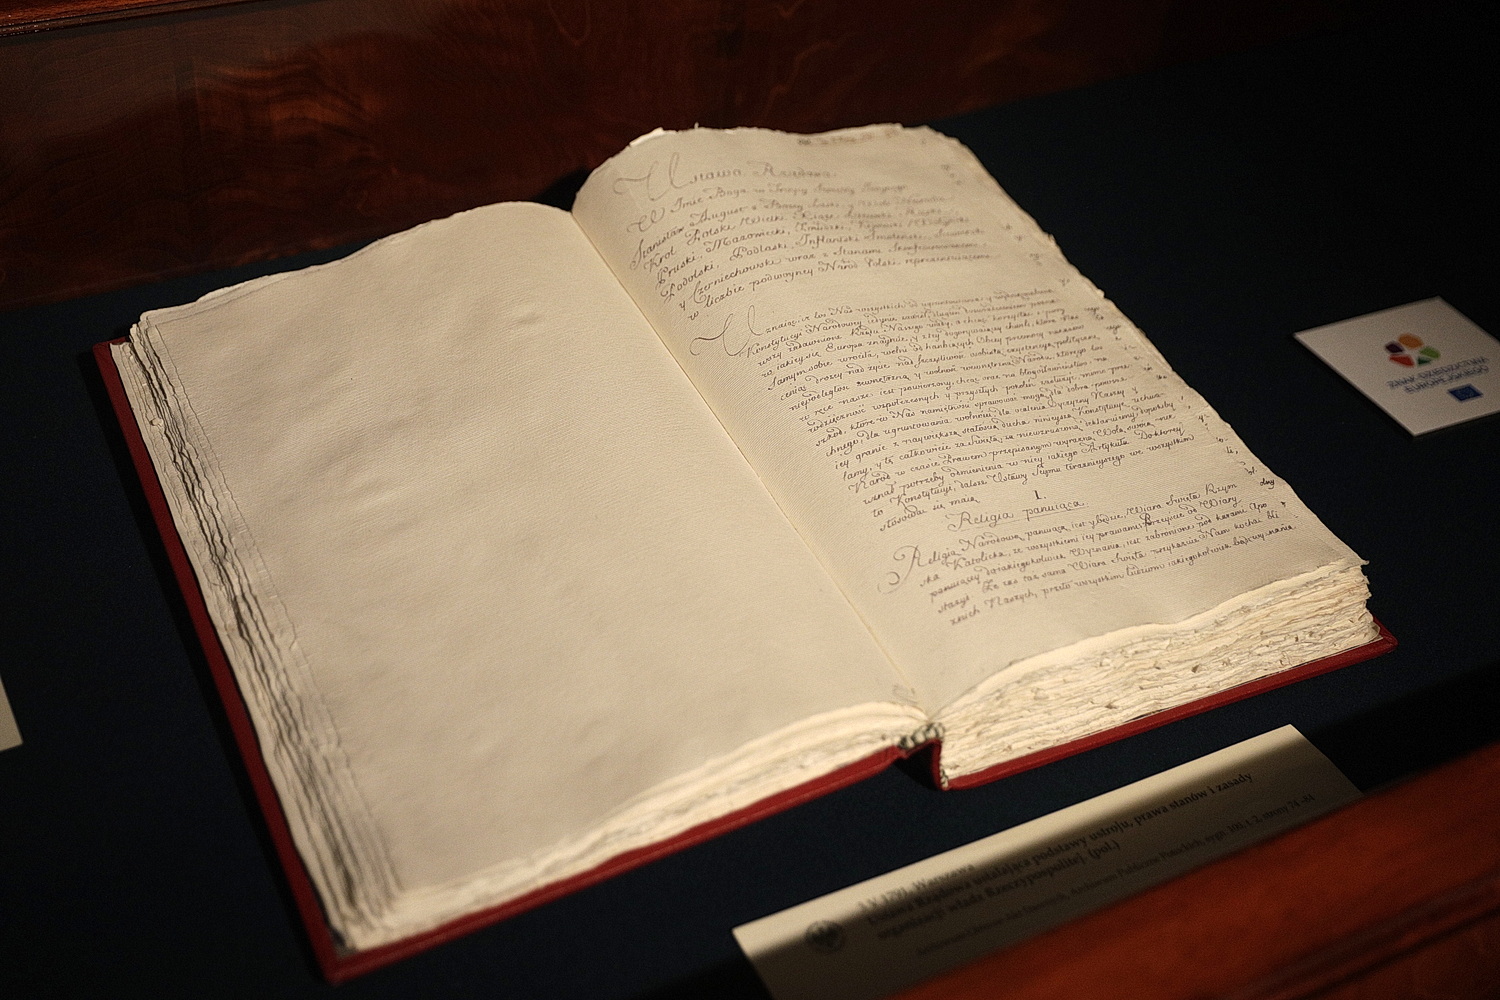 Ustawa Rządowa
W Imię Boga w Trójcy Swiętey Jedynego
Stanisław August z Bożey Łaski y Woli Narodu
Król Polski, Wielki Xiąże Litewski, Ruski,
Pruski, Mazowiecki, Zmudzki, Kijowski, Wołyński
Podolski, Podlaski, Inflantski, Smoleński, Siewierski
y Czerniechowski wraz z Stanami Skonfederowanemi
w liczbie podwoyney Naród Polski reprezentuiącemi
Uznaiąc iż los Nas wszystkich od ugruntowania y wydoskonalenia
Konstytucyi Narodowey iedynie zawisł, długim doświadczeniem pozna-
wszy zadawnione Rządu Naszego wady, a chcąc korzystać z pory
w iakiey się Europa znayduie y z tey dogorywaiącey chwili, która Nas
samym sobie wróciła, wolni od hańbiących Obcey przemocy nakazów
ceniąc drożey nad życie nad szczęśliwość osobistą exystencyą polityczną
niepodległość zewnętrzną y wolność wewnętrzną Narodu, którego los
w ręce nasze iest powierzony, chcąc oraz na błogosławieństwo, na
wdzięczność współczesnych y przyszłych pokoleń zasłużyć, mimo prze-
szkód, które w Nas namiętności sprawować mogą dla dobra powsze-
chnego, dla ugruntowania wolności, dla ocalenia Oyczyzny Naszey
iey granic z naywiększą stałością ducha ninieyszą Konstytucyę uchwa-
lamy, y tę całkowicie za świętą, za niewzruszoną deklaruiemy, dopokiby
Naród w czasie Prawem przepisanym wyraźną Wolą swoią nie
uznał potrzeby odmienienia w niey iakiego Artykułu. Do ktorey
to Konstytucyi, dalsze Ustawy Seymu teraznieyszego we wszystkim
stosować się maią
I.
Religia panuiąca
Religią Narodową panuiącą iest y będzie, Wiara Swięta Rzym
ska Katolicka, ze wszystkiemi iey prawami. Przeyście od Wiary
panuiącey do iakiegokolwiek Wyznania, iest zabronione pod karami Apo
stazyi. Ze zaś taż sama Wiara Swięta przykazuie Nam kochać bli
znich Naszych, przeto wszystkim ludziom iakiegokolwiek bądź wyznania
ZNAK DZIEDZICTWA
EUROPEJSKIEGO
3 V 1791, Warszawa
Ustawa Rządowa ustalająca podstawy ustroju, prawa stanów i zasady
organizacji władz Rzeczypospolitej. (pol.)
Archiwum Główne Akt Dawnych, Archiwum Publiczne Potockich, sygn. 100, t. 2, strony 74-84